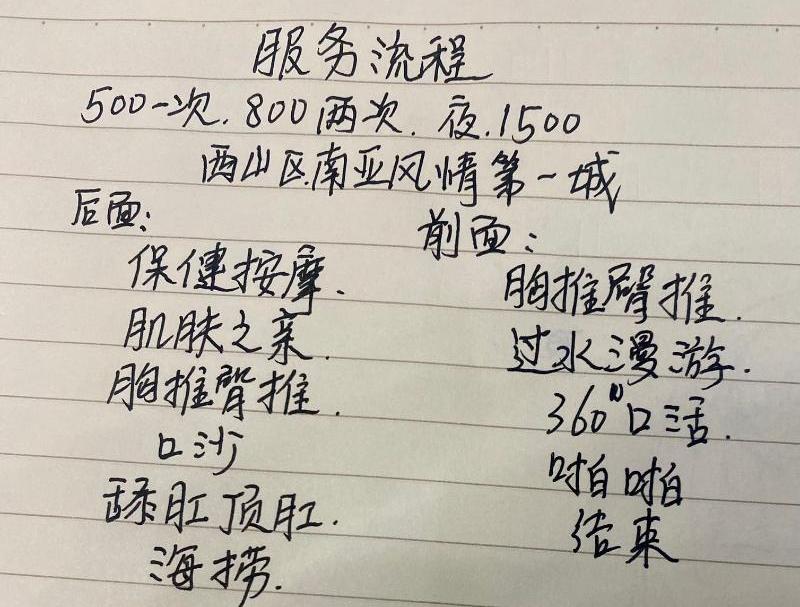 服务流程
500一次.800两次.夜.1500
西山区南亚风情第一城
后面:
保健按摩.
肌肤之亲.
胸推臀推.
口沙
舔肛顶肛.
海捞.
前面:
胸推臀推.
过水漫游.
360°口活.
啪啪
结束